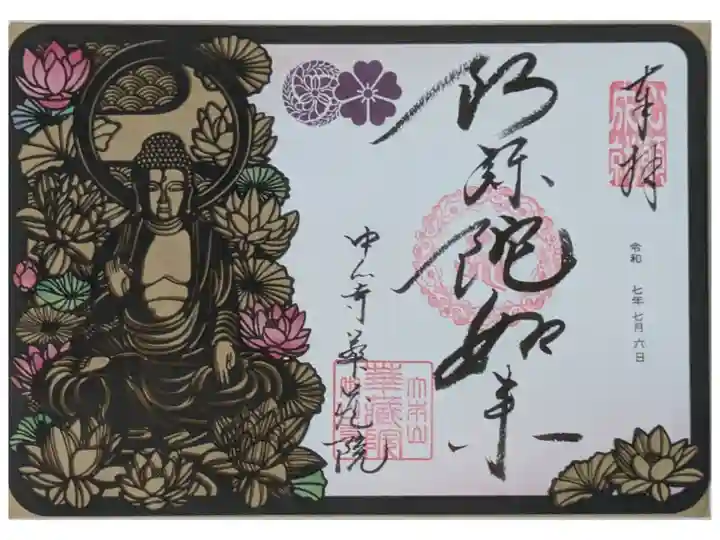 奉拝
令和 七年 七月 六日
阿弥陀如来
中山寺華蔵院
華蔵院